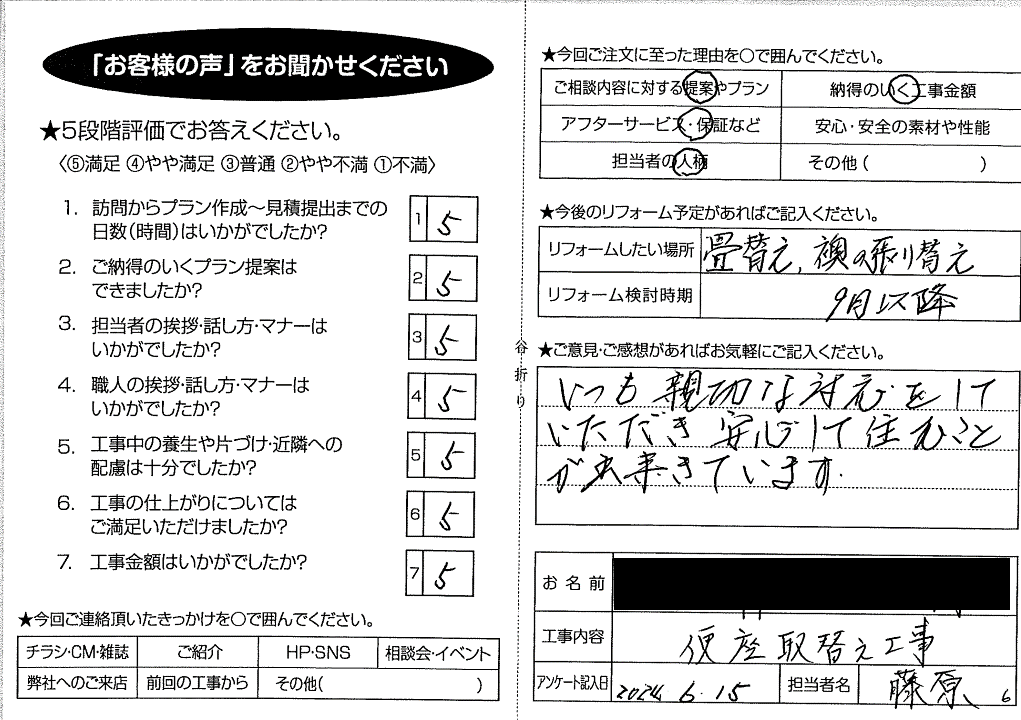 「お客様の声」をお聞かせください
★5段階評価でお答えください。
〈⑤満足 ④やや満足 ③普通 ②やや不満 ①不満〉
1. 訪問からプラン作成～見積提出までの
日数(時間)はいかがでしたか?
1 5
2. ご納得のいくプラン提案は
できましたか?
2 5
3. 担当者の挨拶・話し方・マナーは
いかがでしたか?
3 5
4. 職人の挨拶・話し方・マナーは
いかがでしたか?
4 5
5. 工事中の養生や片づけ・近隣への
配慮は十分でしたか?
5 5
6. 工事の仕上がりについては
ご満足いただけましたか?
6 5
7. 工事金額はいかがでしたか?
7 5
★今回ご連絡頂いたきっかけを○で囲んでください。
チラシ・CM・雑誌 ご紹介 HP・SNS 相談会・イベント
弊社へのご来店 前回の工事から その他( )
谷折り
★今回ご注文に至った理由を○で囲んでください。
ご相談内容に対する提案やプラン 納得のいく工事金額
アフターサービス・保証など 安心・安全の素材や性能
担当者の人柄 その他( )
★今後のリフォーム予定があればご記入ください。
リフォームしたい場所 畳替え、襖の張り替え
リフォーム検討時期 9月以降
★ご意見・ご感想があればお気軽にご記入ください。
いつも親切な対応をして
いただき安心して住むこと
が出来きています.
お名前
工事内容 便座取替え工事
アンケート記入日 2024.6.15 担当者名 藤原 6